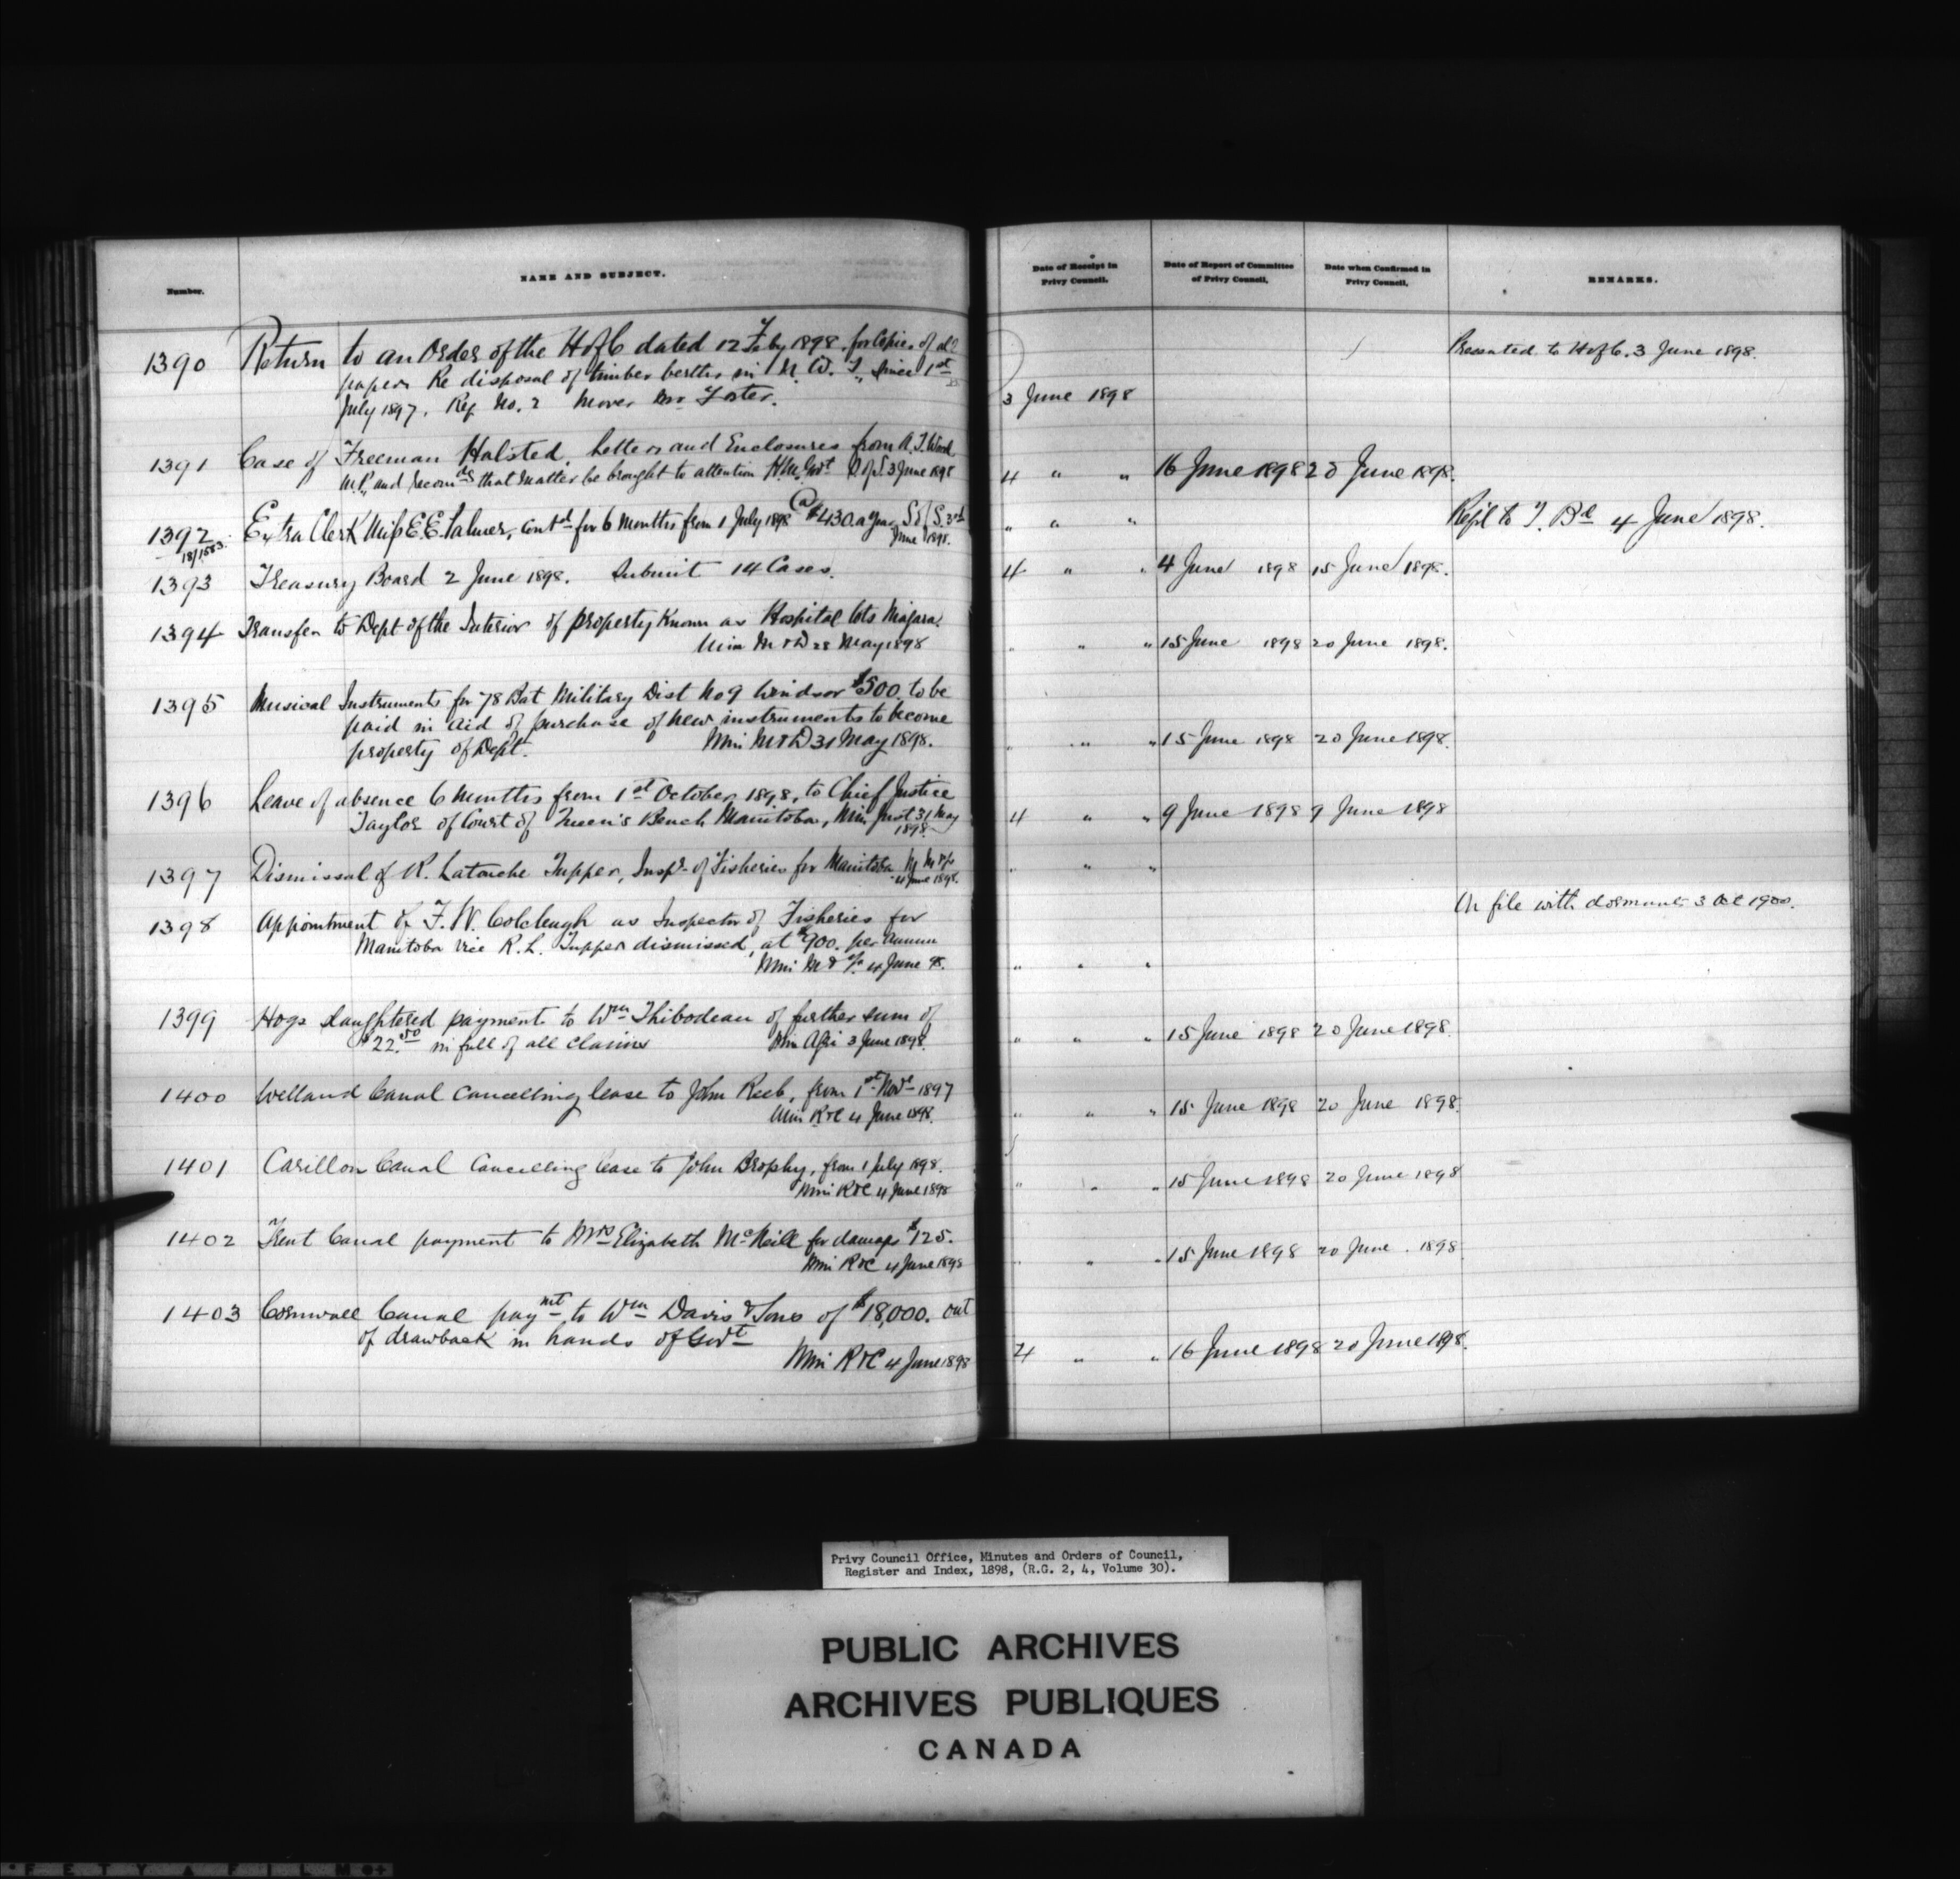 Number.
NAME AND SUBJECT.
Date of Receipt in Privy Council.
Date of Report of Committee of Privy Council,
Date when Confirmed in Privy Council,
REMARKS.
1390 Return to an Order of the H of C dated 12 Feby 1898 for Copies of all
papers Re disposal of timber berths in N. W. T., since 1st
July 1897. Reg No. 2 Mover Mr Foster.
3 June 1898
Presented to H of C. 3 June 1898.
1391 Case of Freeman Halsted, Letter and Enclosures from A. T. Wood
M.P., and recomds that matter be brought to attention H.M. Govt S of S. 3 June 1898
4 " " 16 June 1898 20 June 1898.
1392 Extra Clerk Miss E. E. Palmer, contd for 6 months from 1 July 1898 @ $430. a year, S of S. 3rd
18/1583. June 1898.
" " " Refd to T. Bd 4 June 1898.
1393 Treasury Board 2 June 1898. Submit 14 Cases.
4 " " 4 June 1898 15 June 1898.
1394 Transfer to Dept of the Interior of property known as Hospital lots Niagara.
Min M & D 28 May 1898
" " " 15 June 1898 20 June 1898.
1395 Musical Instruments for 78 Bat Military Dist No 9 Windsor $500. to be
paid in aid of purchase of new instruments to become
property of Dept. Min M & D 31 May 1898.
" " " 15 June 1898 20 June 1898.
1396 Leave of absence 6 months from 1st October 1898, to Chief Justice
Taylor of Court of Queen's Bench Manitoba, Min Just 31 May
1898
4 " " 9 June 1898 9 June 1898
1397 Dismissal of R. Latouche Tupper, Inspr of Fisheries for Manitoba M M & F
4 June 1898.
" " "
1398 Appointment of F. W. Colcleugh as Inspector of Fisheries for
Manitoba vice R. L. Tupper dismissed, at $900. per annum
Min M & F. 4 June 98.
" " "
On file with dormants 3 Oct 1900.
1399 Hogs slaughtered payment to Wm Thibodeau of further sum of
$22.50 in full of all claims Min Agri 3 June 1898.
" " " 15 June 1898 20 June 1898.
1400 Welland Canal Cancelling lease to John Reeb, from 1st Novr 1897
Min R & C 4 June 1898.
" " " 15 June 1898 20 June 1898.
1401 Carillon Canal Cancelling lease to John Brophy, from 1 July 1898.
Min R & C 4 June 1898
" " " 15 June 1898 20 June 1898
1402 Trent Canal payment to Mrs Elizabeth McNeill for damages $125.
Min R & C 4 June 1898
" " " 15 June 1898 20 June 1898
1403 Cornwall Canal paymt to Wm Davis & Sons of $18,000. out
of drawback in hands of Govt
Min R & C 4 June 1898
4 " " 16 June 1898 20 June 1898.
Privy Council Office, Minutes and Orders of Council,
Register and Index, 1898, (R.G. 2, 4, Volume 30).
PUBLIC ARCHIVES
ARCHIVES PUBLIQUES
CANADA